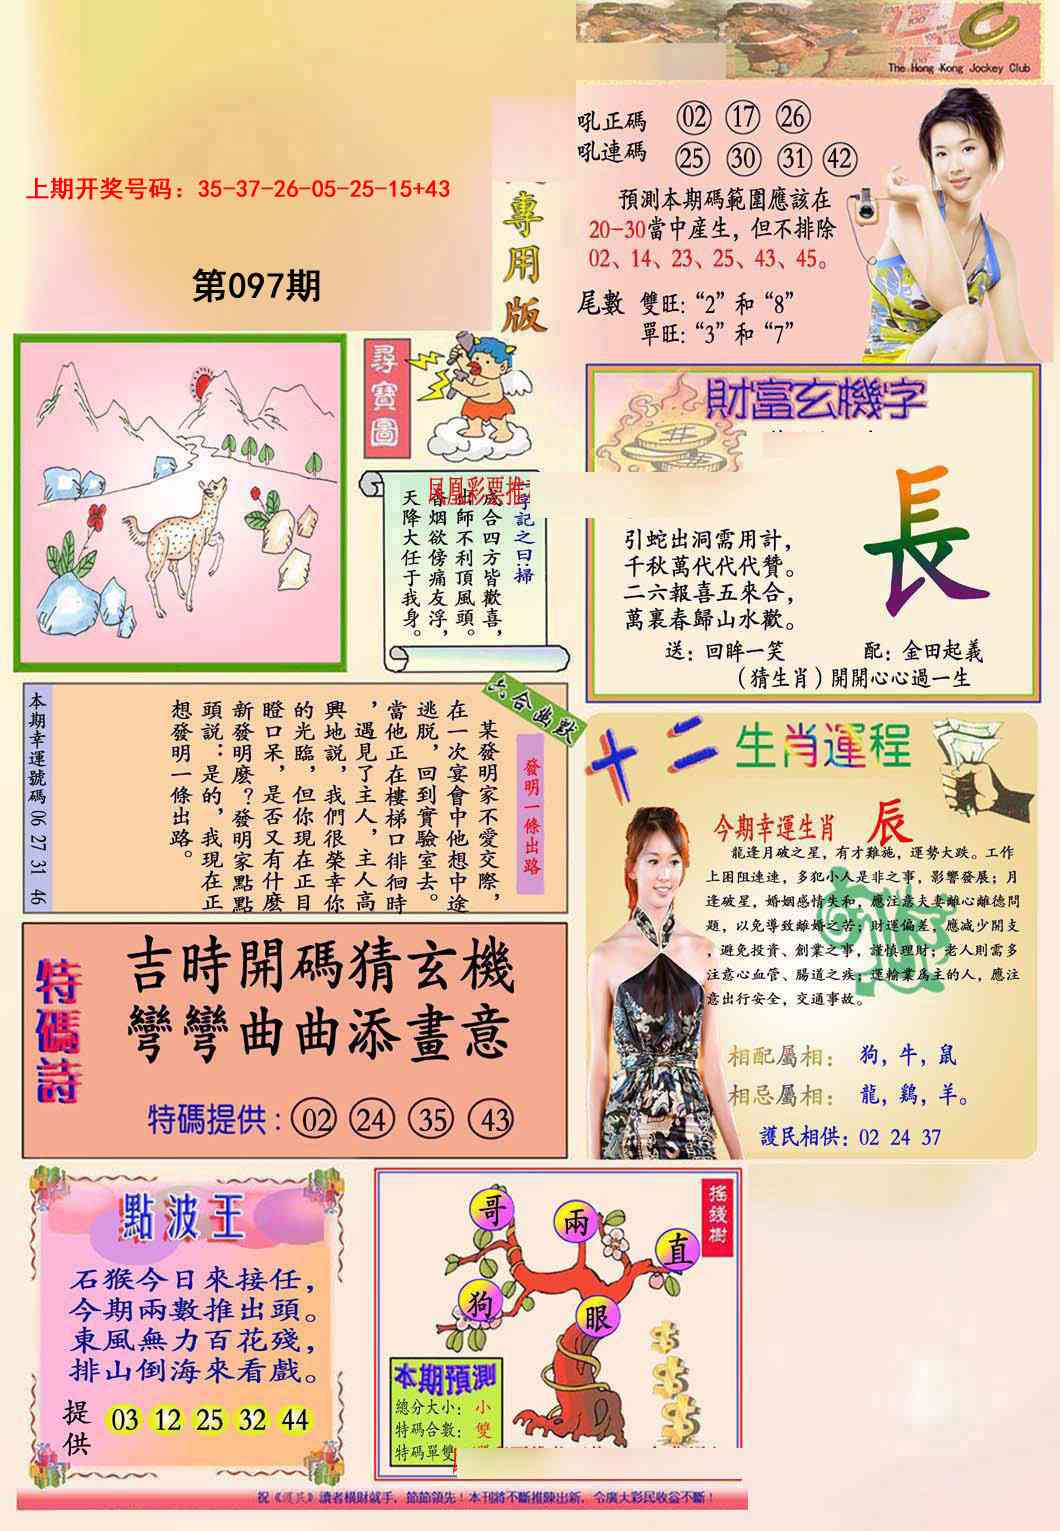 The Hong Kong Jockey Club
上期开奖号码：35-37-26-05-25-15+43
第097期
專用版
吼正碼 02 17 26
吼連碼 25 30 31 42
預測本期碼範圍應該在
20-30當中産生，但不排除
02、14、23、25、43、45。
尾數 雙旺：“2”和“8”
單旺：“3”和“7”
尋寶圖
鳳凰彩票推
字記之曰：掃
成合四方皆歡喜，
出師不利頂風頭。
香烟欲傍痛友浮，
天降大任于我身。
財富玄機字
長
引蛇出洞需用計，
千秋萬代代代贊。
二六報喜五來合，
萬裏春歸山水歡。
送：回眸一笑 配：金田起義
（猜生肖）開開心心過一生
六合幽默
發明一條出路
某發明家不愛交際，
在一次宴會中他想中途
逃脱，回到實驗室去。
當他正在樓梯口徘徊時
，遇見了主人，主人高
興地説，我們很榮幸你
的光臨，但你現在正目
瞪口呆，是否又有什麽
新發明麽？發明家點點
頭説：是的，我現在正
想發明一條出路。
本期幸運號碼 06 27 31 46
十二生肖運程
今期幸運生肖 辰
龍逢月破之星，有才難施，運勢大跌。工作
上困阻連連，多犯小人是非之事，影響發展；月
逢破星，婚姻感情失和，應注意夫妻離心離德問
題，以免導致離婚之苦；財運偏差，應减少開支
，避免投資、創業之事，謹慎理財；老人則需多
注意心血管、腸道之疾；運輸業爲主的人，應注
意出行安全，交通事故。
相配屬相： 狗，牛，鼠
相忌屬相： 龍，鷄，羊。
護民相供：02 24 37
特碼詩
吉時開碼猜玄機
彎彎曲曲添畫意
特碼提供：02 24 35 43
點波王
石猴今日來接任，
今期兩數推出頭。
東風無力百花殘，
排山倒海來看戲。
提供 03 12 25 32 44
搖錢樹
哥
兩
直
狗
眼
本期預測
總分大小：小
特碼合數：雙
特碼單雙
祝《護民》讀者橫財就手，節節領先！本刊將不斷推陳出新，令廣大彩民收益不斷！